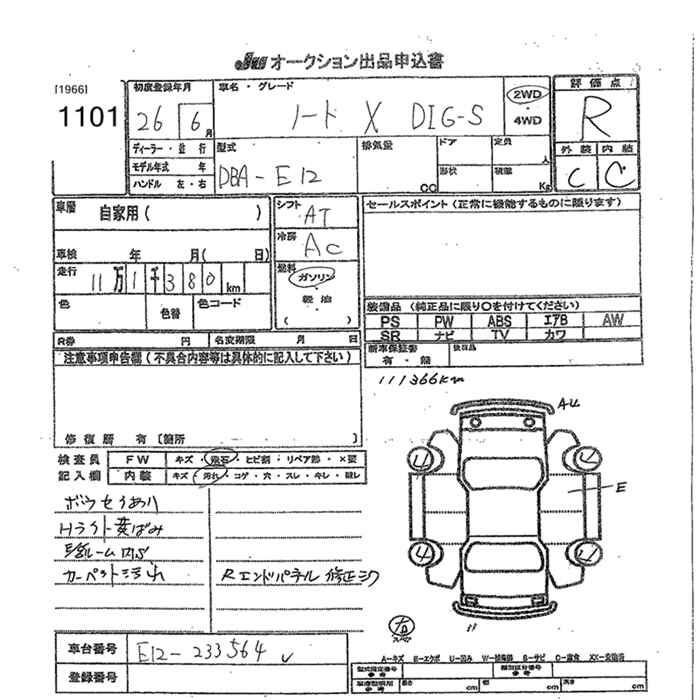 JU オークション出品申込書
[1966]
1101
初度登録年月
26 6月
車名・グレード
ノート X DIG-S
2WD
4WD
評価点
R
外装 内装
C C
ディーラー・並行
モデル年式 年
ハンドル 左・右
型式
DBA-E12
排気量
CC
ドア
形状
定員
人
積載
Kg
車歴
自家用( )
車検 年 月( 日)
走行
11万1千380km
色
色替
色コード
シフト
AT
冷房
AC
燃料
ガソリン
軽油
( )
セールスポイント(正常に機能するものに限ります)
装備品(純正品に限り〇を付けてください)
PS PW ABS エアB AW
SR ナビ TV カワ
新車保証書
有・無
後日品
R券 円 名変期限 月 日
注意事項申告欄(不具合内容等は具体的に記入して下さい)
修復歴 有〔箇所 〕
111366km
検査員
記入欄
FW キズ・飛石・ヒビ割・リペア跡・×要
内装 キズ・汚れ・コゲ・穴・スレ・キレ・破レ
Hライト黄ばみ
カーペット汚れ
Rエンドパネル修正
E
車台番号
E12-233564
登録番号
A-キズ E-エクボ U-凹み W-補修跡 S-サビ C-腐食 XX-交換済
型式指定番号
参考
類別区分番号
参考
長さ cm 幅 cm 高さ cm